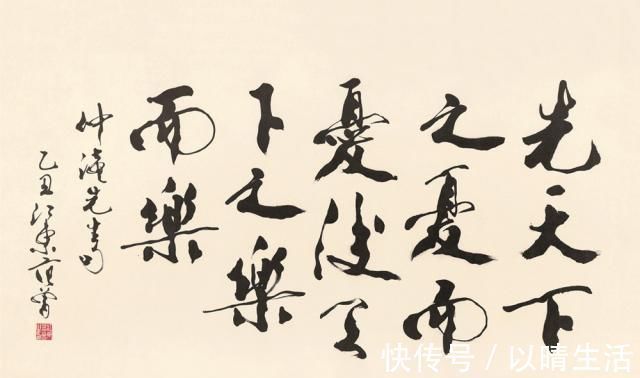 先天下
之憂而
憂後天
下之樂
而樂
仲淹先生句
乙丑江東范曾
快传号 / 以晴生活